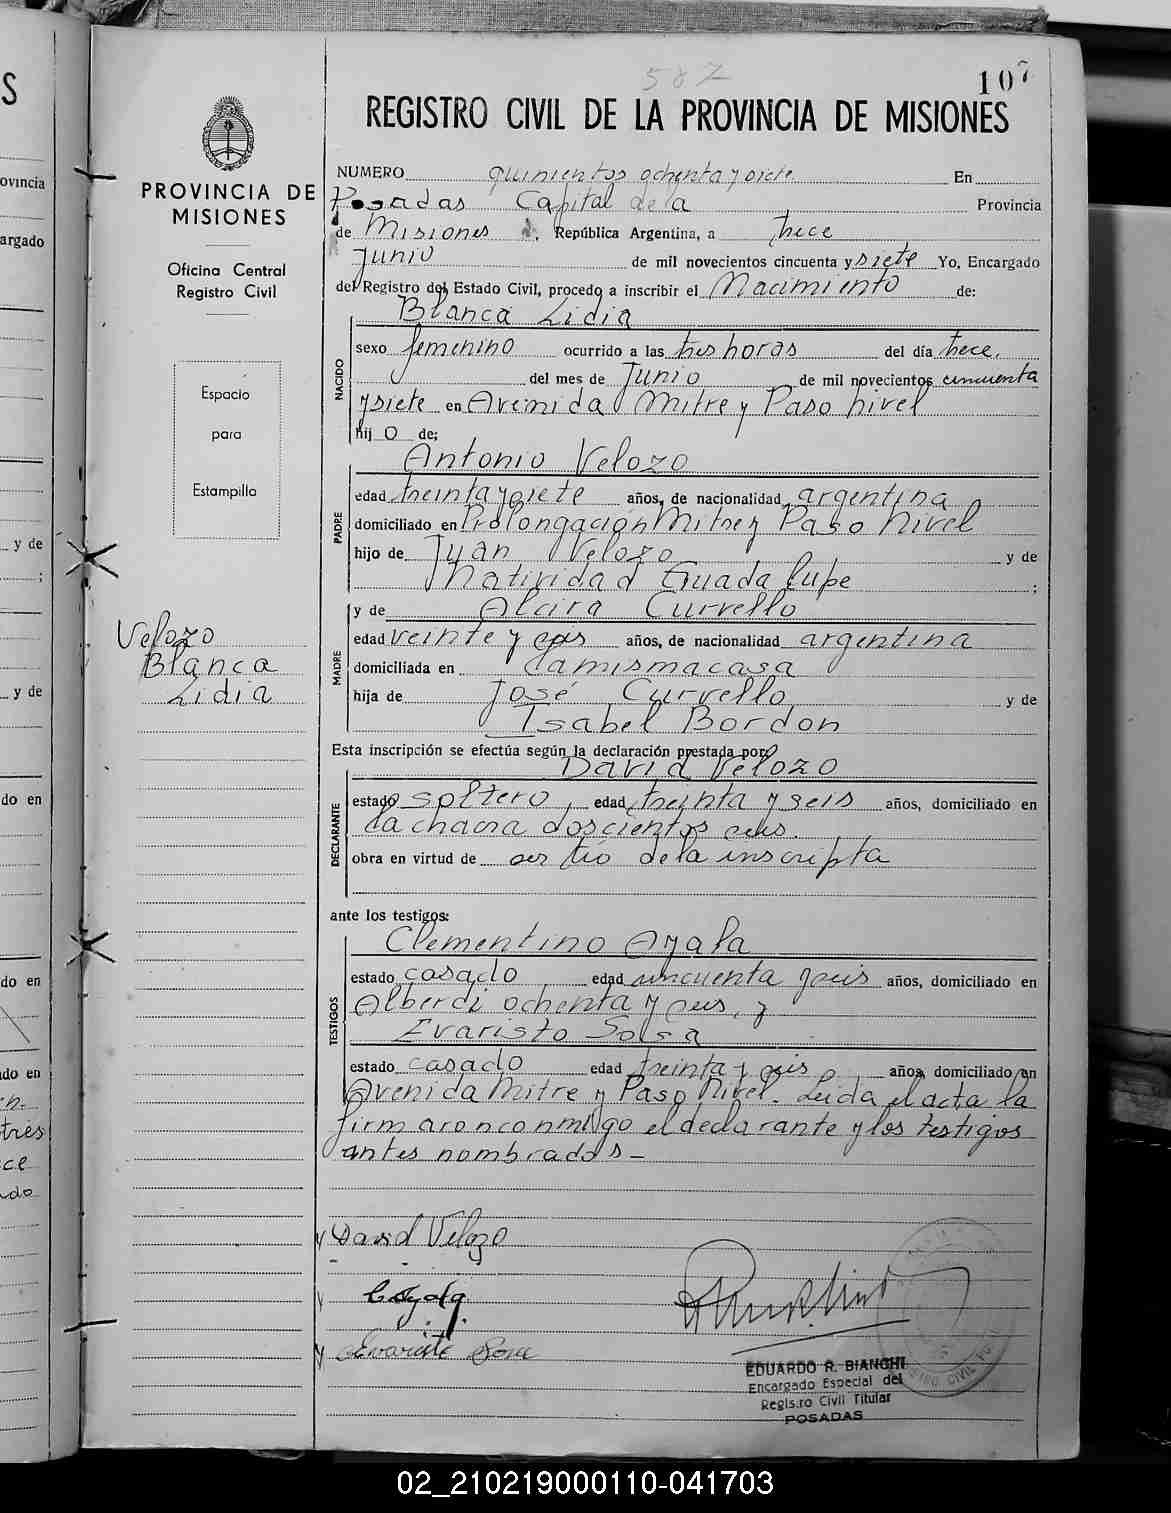 587
107
REGISTRO CIVIL DE LA PROVINCIA DE MISIONES
PROVINCIA DE
MISIONES
Oficina Central
Registro Civil
Espacio
para
Estampilla
Velozo
Blanca
Lidia
NUMERO quinientos ochenta y siete En
Posadas Capital de la Provincia
de Misiones, República Argentina, a trece
Junio de mil novecientos cincuenta y siete Yo, Encargado
del Registro del Estado Civil, procedo a inscribir el Nacimiento de:
NACIDO
Blanca Lidia
sexo femenino ocurrido a las tres horas del día trece,
del mes de Junio de mil novecientos cincuenta
y siete en Avenida Mitre y Paso nivel
hij o de;
PADRE
Antonio Velozo
edad treinta y siete años, de nacionalidad argentina
domiciliado en Prolongación Mitre y Paso Nivel
hijo de Juan Velozo y de
Natividad Guadalupe ;
MADRE
y de Alcira Curvello
edad veinte y seis años, de nacionalidad argentina
domiciliada en la misma casa
hija de José Curvello y de
Isabel Bordon
Esta inscripción se efectúa según la declaración prestada por:
DECLARANTE
David Velozo
estado soltero, edad treinta y seis años, domiciliado en
la chacra doscientos seis.
obra en virtud de ser tio de la inscripta
ante los testigos:
TESTIGOS
Clementino Ayala
estado casado edad cincuenta y seis años, domiciliado en
Alberdi ochenta y seis, y
Evaristo Sosa
estado casado edad treinta y seis años, domiciliado en
Avenida Mitre y Paso Nivel. Leida el acta la
firmaron conmigo el declarante y los testigos
antes nombrados-
David Velozo
C Ayala
Evaristo Sosa
EDUARDO R. BIANCHI
Encargado Especial del
Registro Civil Titular
POSADAS
ovincia
argado
y de
;
y de
do en
do en
do en
tres
02_210219000110-041703